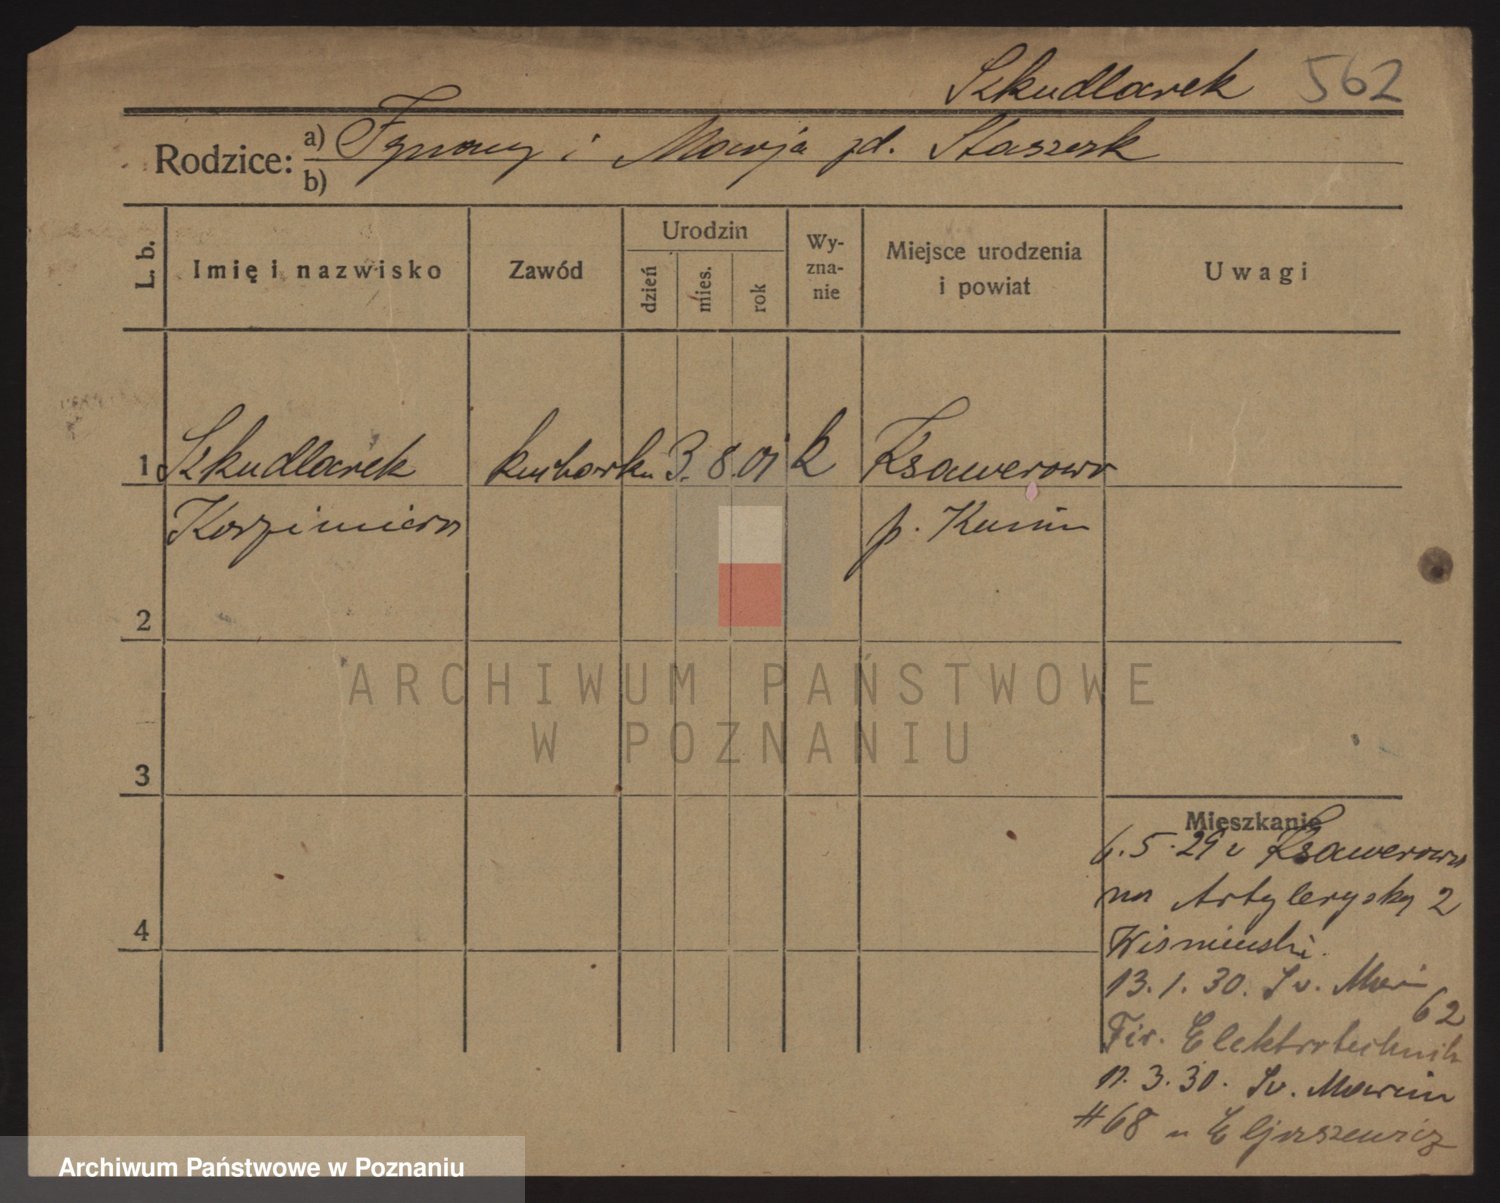 Szkudlarek 562
Rodzice: a) Ignacy i Marja zd. Staszak
b)
L. b.
Imię i nazwisko
Zawód
Urodzin
dzień
mies.
rok
Wy-
zna-
nie
Miejsce urodzenia
i powiat
Uwagi
1 Szkudlarek kucharka 3. 8. 01 k Ksawerowo
Kazimiera p. Konin
2
3
4
ARCHIWUM PAŃSTWOWE
W POZNANIU
Mieszkanie
6.5.29 z Ksawerowa
na Artyleryska 2
Wiśniewski.
13.1.30. Św. Marcin
62
Fir. Elektrotechnik
11.3.30. Św. Marcin
#68 u Eljaszewicz
Archiwum Państwowe w Poznaniu